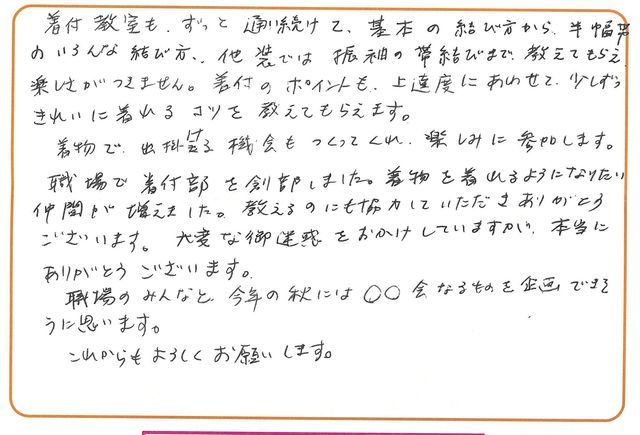 着付教室も、ずっと通い続けて、基本の結び方から、半幅帯
のいろんな結び方、他装では振袖の帯結びまで教えてもらえ、
楽しさがつきません。着付のポイントも、上達度にあわせて、少しずつ
きれいに着れるコツを教えてもらえます。
着物で、出掛ける機会もつくってくれ、楽しみに参加します。
職場で着付部を創部しました。着物を着れるようになりたい
仲間が増えました。教えるのにも協力していただきありがとう
ございます。大変な御迷惑をおかけしていますが、本当に
ありがとうございます。
職場のみんなと、今年の秋には〇〇会なるものを企画できそ
うに思います。
これからもよろしくお願いします。